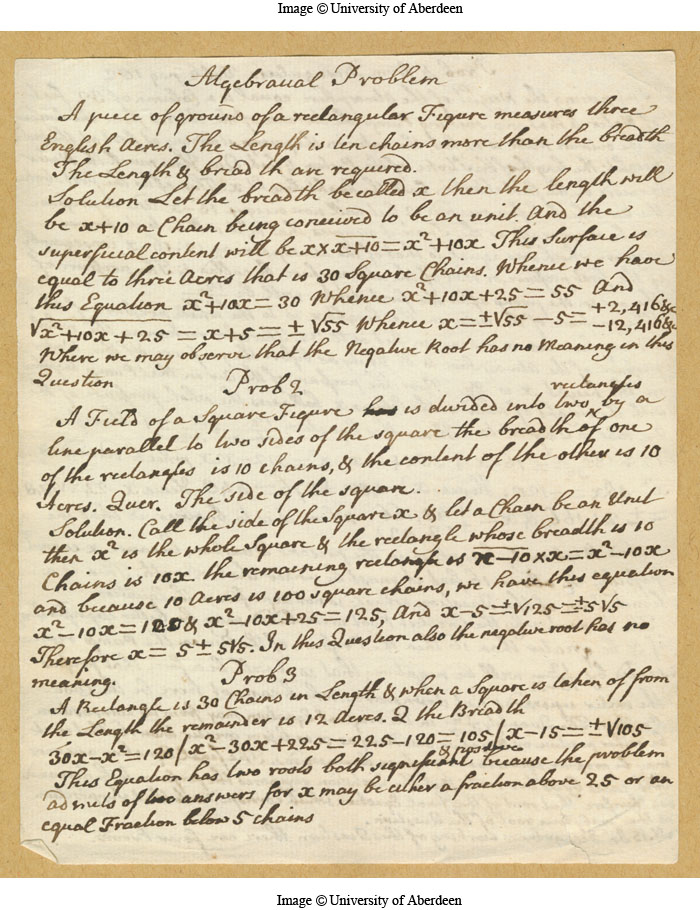 Image © University of Aberdeen
Algebraical Problem
A piece of ground of a rectangular Figure measures three
English Acres. The Length is ten chains more than the breadth
The Length & breadth are required.
Solution Let the breadth be called x then the length will
be x+10 a Chain being conceived to be an unit. And the
superficial content will be x×x+10=x²+10x This Surface is
equal to three Acres that is 30 Square Chains. Whence we have
this Equation x²+10x=30 Whence x²+10x+25=55 And
√x²+10x+25=x+5=±√55 Whence x=±√55-5= +2,416&c -12,416&c
Where we may observe that the Negative Root has no Meaning in this
Question
Prob 2
A Field of a Square Figure is divided into two rectangles by a
line parallel to two sides of the square the breadth of one
of the rectangles is 10 chains, & the content of the other is 10
Acres. Quer. The side of the square.
Solution. Call the side of the Square x & let a Chain be an Unit
then x² is the whole Square & the rectangle whose breadth is 10
Chains is 10x the remaining rectangle is x-10×x=x²-10x
and because 10 Acres is 100 square chains, we have this equation
x²-10x=100 & x²-10x+25=125, And x-5=±√125=±5√5
Therefore x=5±5√5. In this Question also the negative root has no
meaning.
Prob 3
A Rectangle is 30 Chains in Length & when a Square is taken of from
the Length the remainder is 12 Acres. Q the Breadth
30x-x²=120/x²-30x+225=225-120=105/x-15=±√105
This Equation has two roots both significant & positive because the problem
admits of two answers for x may be either a fraction above 25 or an
equal Fraction below 5 chains
Image © University of Aberdeen